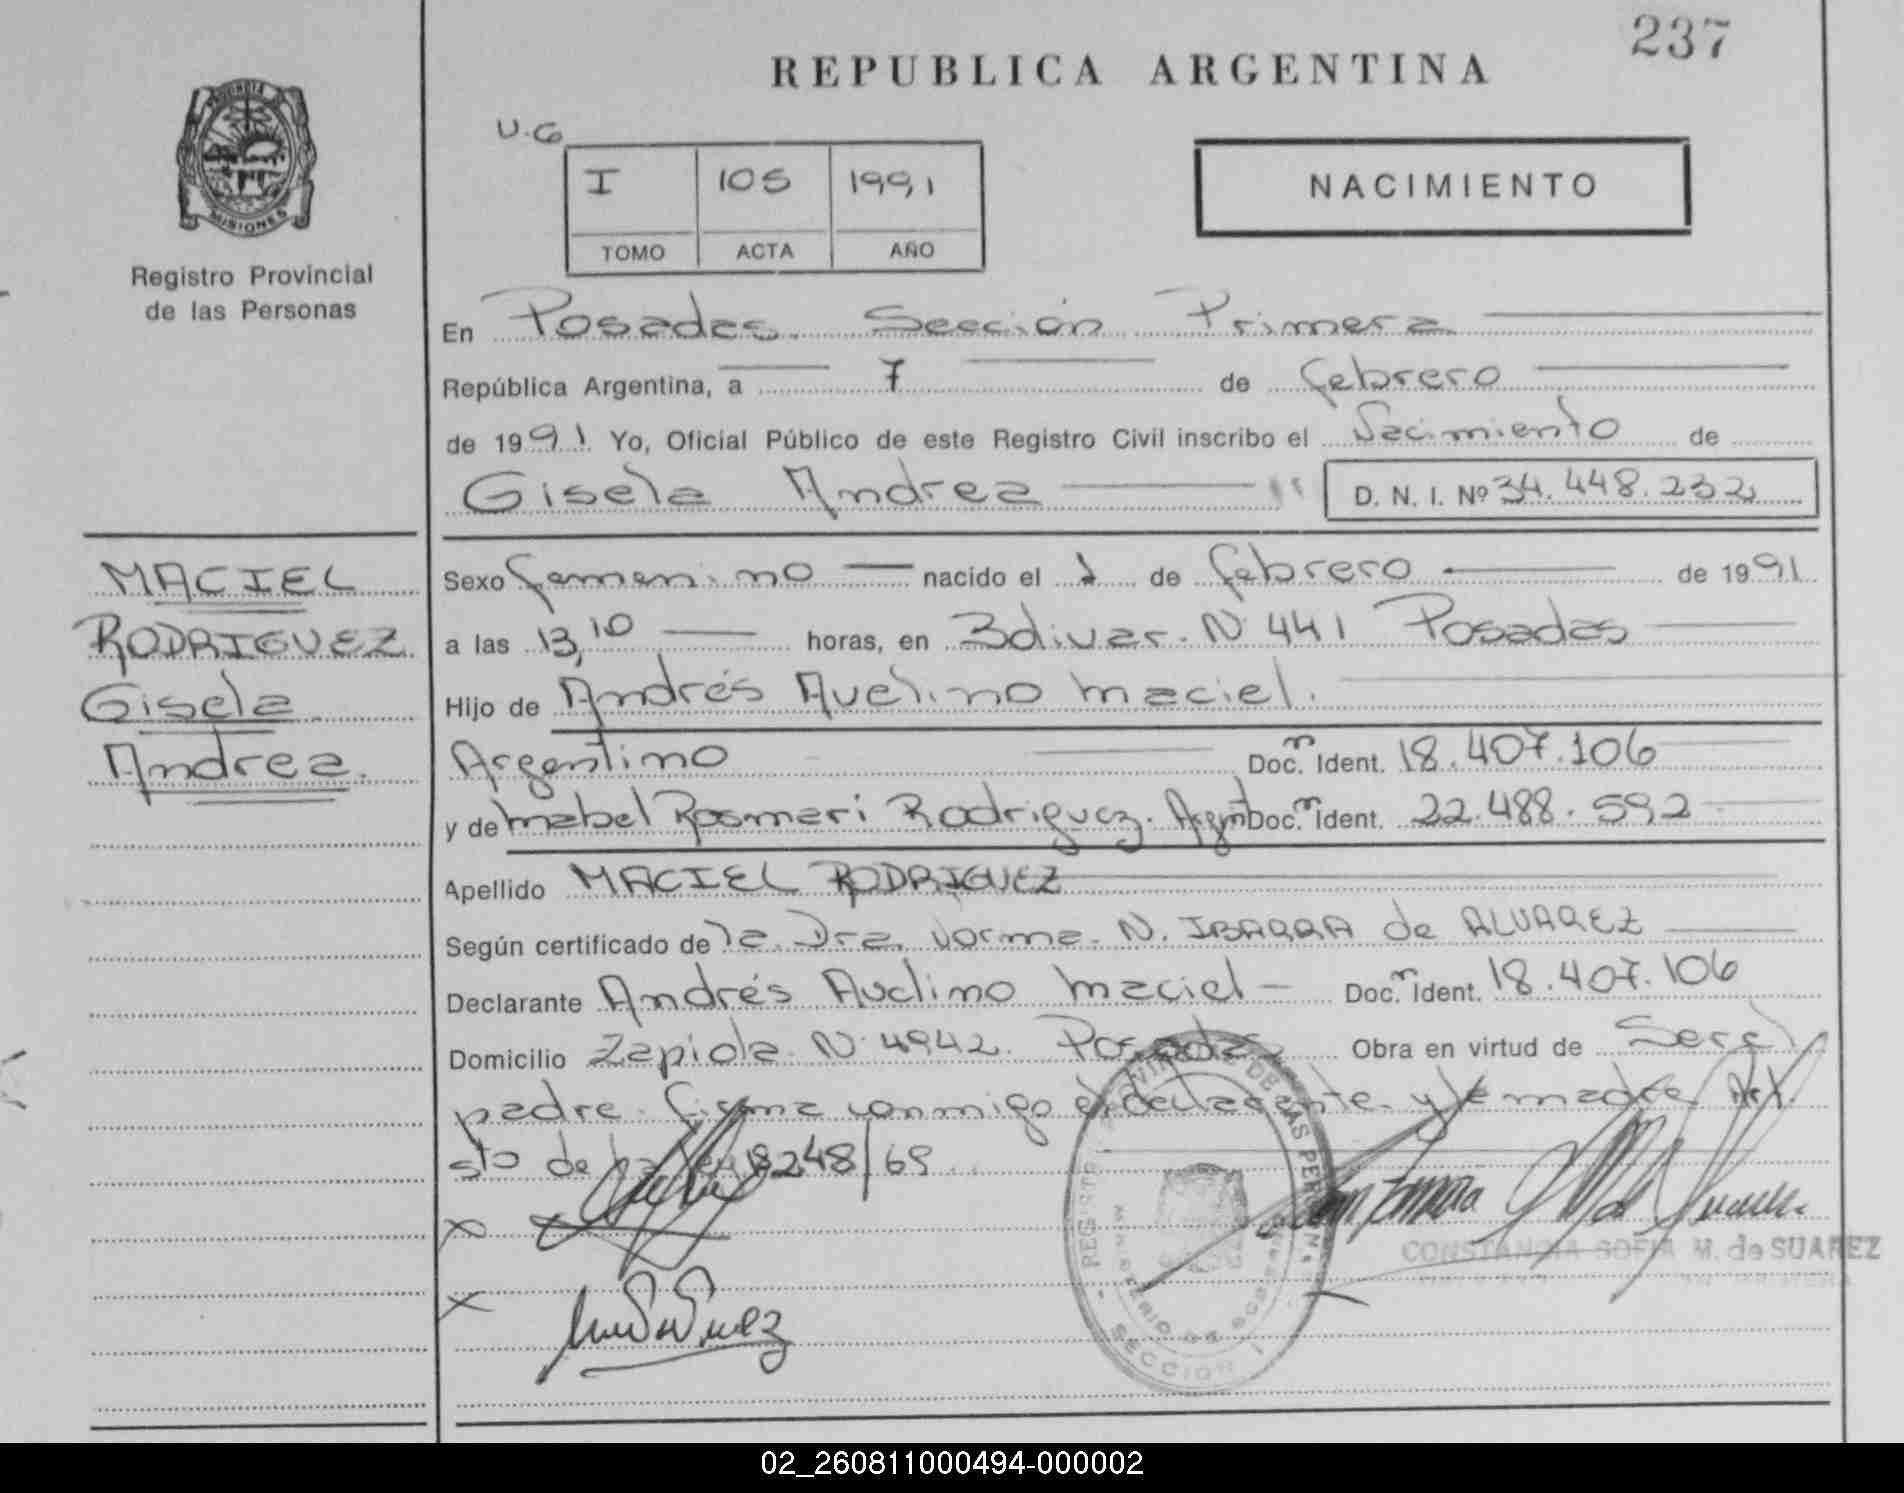 237
REPUBLICA ARGENTINA
PROVINCIA DE
MISIONES
Registro Provincial
de las Personas
U.G
I 105 1991
TOMO ACTA AÑO
NACIMIENTO
En Posadas. Sección Primera
República Argentina, a 7 de febrero
de 1991 Yo, Oficial Público de este Registro Civil inscribo el Nacimiento de
Gisela Andrea D. N. I. Nº 34.448.232
MACIEL
RODRIGUEZ
Gisela
Andrea.
Sexo femenino nacido el 1 de febrero de 1991
a las 13,10 horas, en Bolivar. N 441 Posadas
Hijo de Andrés Avelino Maciel.
Argentino Doc. Ident. 18.407.106
y de Mabel Rosmari Rodriguez. Doc. Ident. 22.488.592
Apellido MACIEL RODRIGUEZ
Según certificado de la Dra. Norma N. IBARRA de ALVAREZ
Declarante Andrés Avelino Maciel Doc. Ident. 18.407.106
Domicilio Zapiola N 4942. Posadas Obra en virtud de Ser el
padre. Firma conmigo el declarante y la madre Art.
5to de la Ley 18248/69
CONSTANCIA SOFIA M. de SUAREZ
SECCION 1
02_260811000494-000002